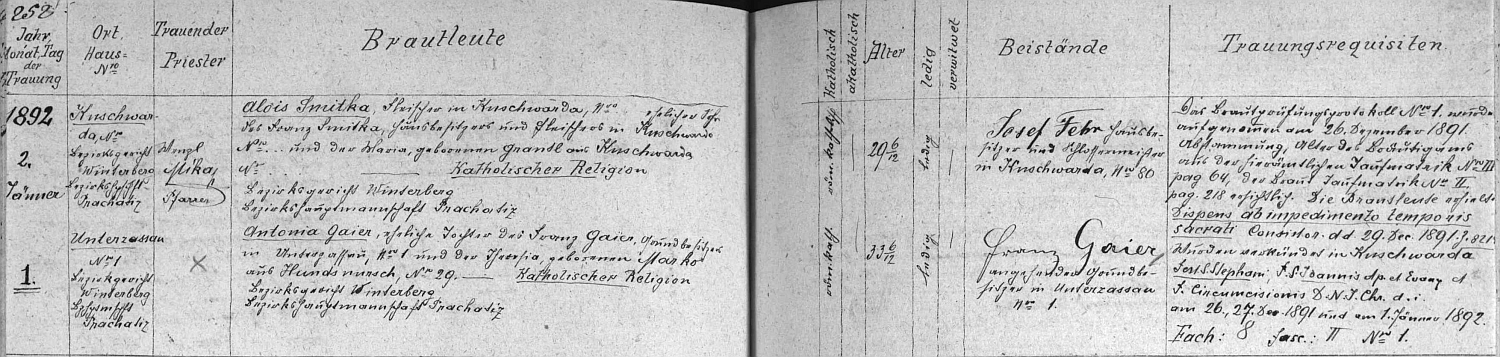 258
Jahr,
Monat, Tag
der
Trauung
Ort,
Haus-
Nro
Trauender
Priester
Brautleute
Katholisch
akatholisch
Alter
ledig
verwitwet
Beistände
Trauungsrequisiten.
1892
2.
Jänner
1.
Kuschwar-
da, Nr
Bezirksgericht
Winterberg
Prachatiz
Wenzl
Mika,
Pfarrer
Alois Smitka, Fleischer in Kuschwarda, Nro ehelicher Sohn
des Franz Smitka, Hausbesitzers und Fleischers in Kuschwarda
Nro... und der Maria, geborenen Grandl aus Kuschwarda
Nr... Katholischer Religion
Bezirksgericht Winterberg
Bezirkshauptmannschaft Prachatiz
röm. kath.
29 6/12
ledig
Josef Fehr Hausbe-
sitzer und Schlossermeister
in Kuschwarda, Nr 80
Unterzassau
Nr 1
Bezirksgericht
Winterberg
Prachatiz
Antonia Gaier, eheliche Tochter des Franz Gaier, Grundbesitzer
in Unterzassau, Nr 1 und der Theresia, geborenen Marko
aus Hundsnursch, Nr 29. Katholischer Religion
Bezirksgericht Winterberg
Bezirkshauptmannschaft Prachatiz
röm. kath.
33 6/12
ledig
Franz Gaier
angehender Grundbe-
sitzer in Unterzassau
Nr 1.
Das Brautprüfungsprotokoll Nr 1. wurde
aufgenommen am 26. Dezember 1891.
Abstammung, Alter des Bräutigams
aus der hierämtlichen Taufmatrik Nro III
pag 64, der Braut Taufmatrik Nr II.
pag. 218 ersichtlich. Die Brautleute erhielt.
Dispens ab impedimento temporis
sacrati Consistor. dd 29. Dec. 1891. Z. 821
Wurden verkündet in Kuschwarda
Fest S. Stephani, F. S. Joannis Ap et Evang et
F. Circumcisionis D. N. J. Chr. d. i.
am 26., 27. Dec. 1891 und am 1. Jänner 1892.
Fach: 8 Fasc.: II Nr 1.